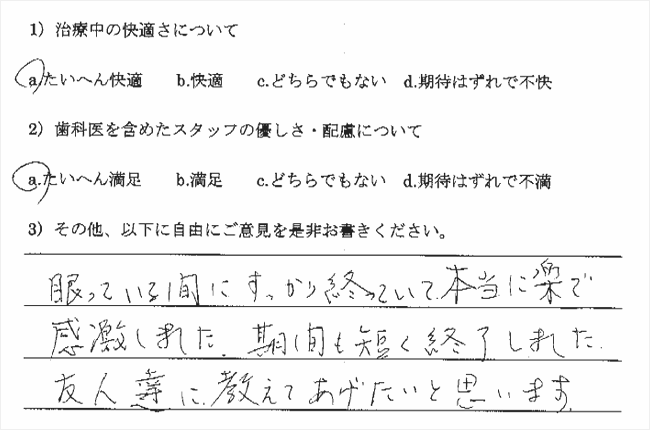 1) 治療中の快適さについて
a.たいへん快適 b.快適 c.どちらでもない d.期待はずれで不快
2) 歯科医を含めたスタッフの優しさ・配慮について
a.たいへん満足 b.満足 c.どちらでもない d.期待はずれで不満
3) その他、以下に自由にご意見を是非お書きください。
眠っている間にすっかり終っていて、本当に楽で
感激しました。期間も短く終了しました。
友人達に、教えてあげたいと思います。